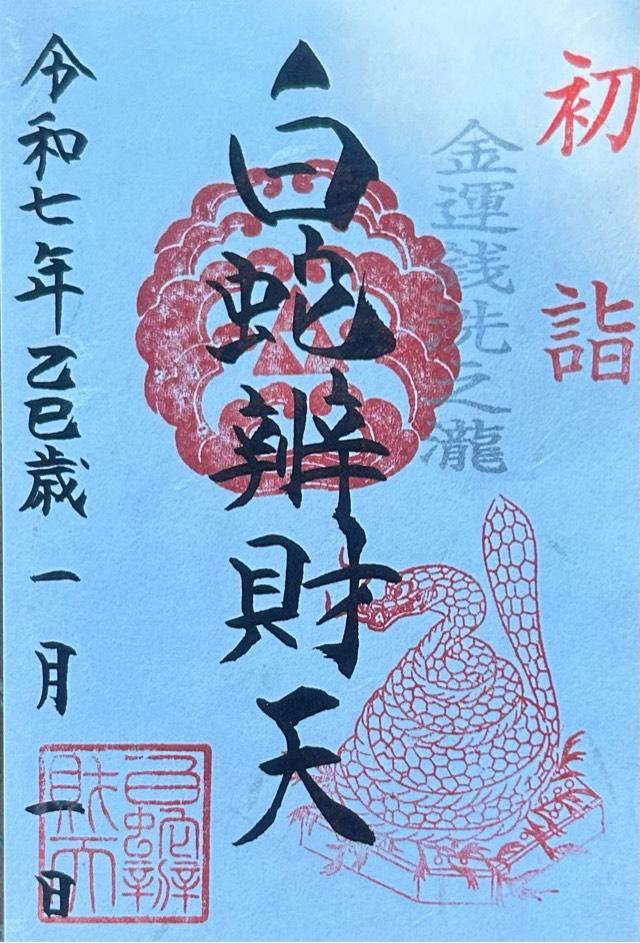 初詣
金運銭洗之瀧
白蛇辨財天
令和七年乙巳歳一月一日
白蛇辨財天